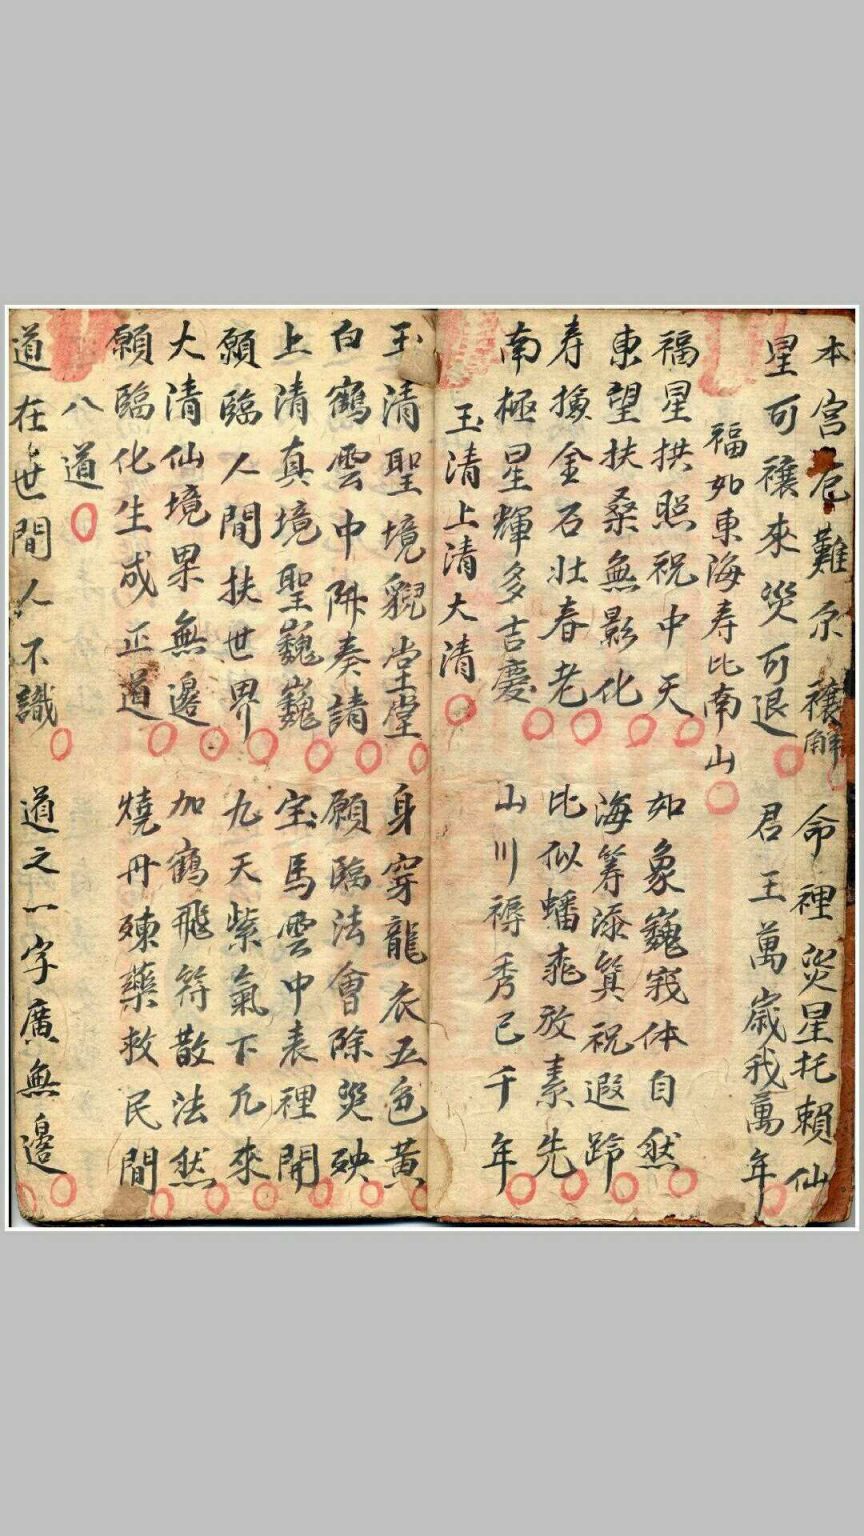 本宫厄難尓禳解 命裡災星托賴仙
星可禳來災可退 君王萬歲我萬年
福如東海寿比南山
福星拱照祝中天 如象巍峩体自然
東望扶桑無影化 海筹添筭祝遐齡
寿擒金石壮春老 比似蟠乖放素先
南極星輝多吉慶 山川褥秀已千年
玉清上清大清
玉清聖境貌堂堂 身穿龍衣五色黃
白鶴雲中陞奏請 願臨法會除災殃
上清真境聖巍巍 宝馬雲中表裡開
願臨人間扶世界 九天紫氣下凡來
大清仙境果無邊 加鶴飛符散法然
願臨化生成正道 燒丹煉藥救民間
八道
道在世間人不識 道之一字廣無邊